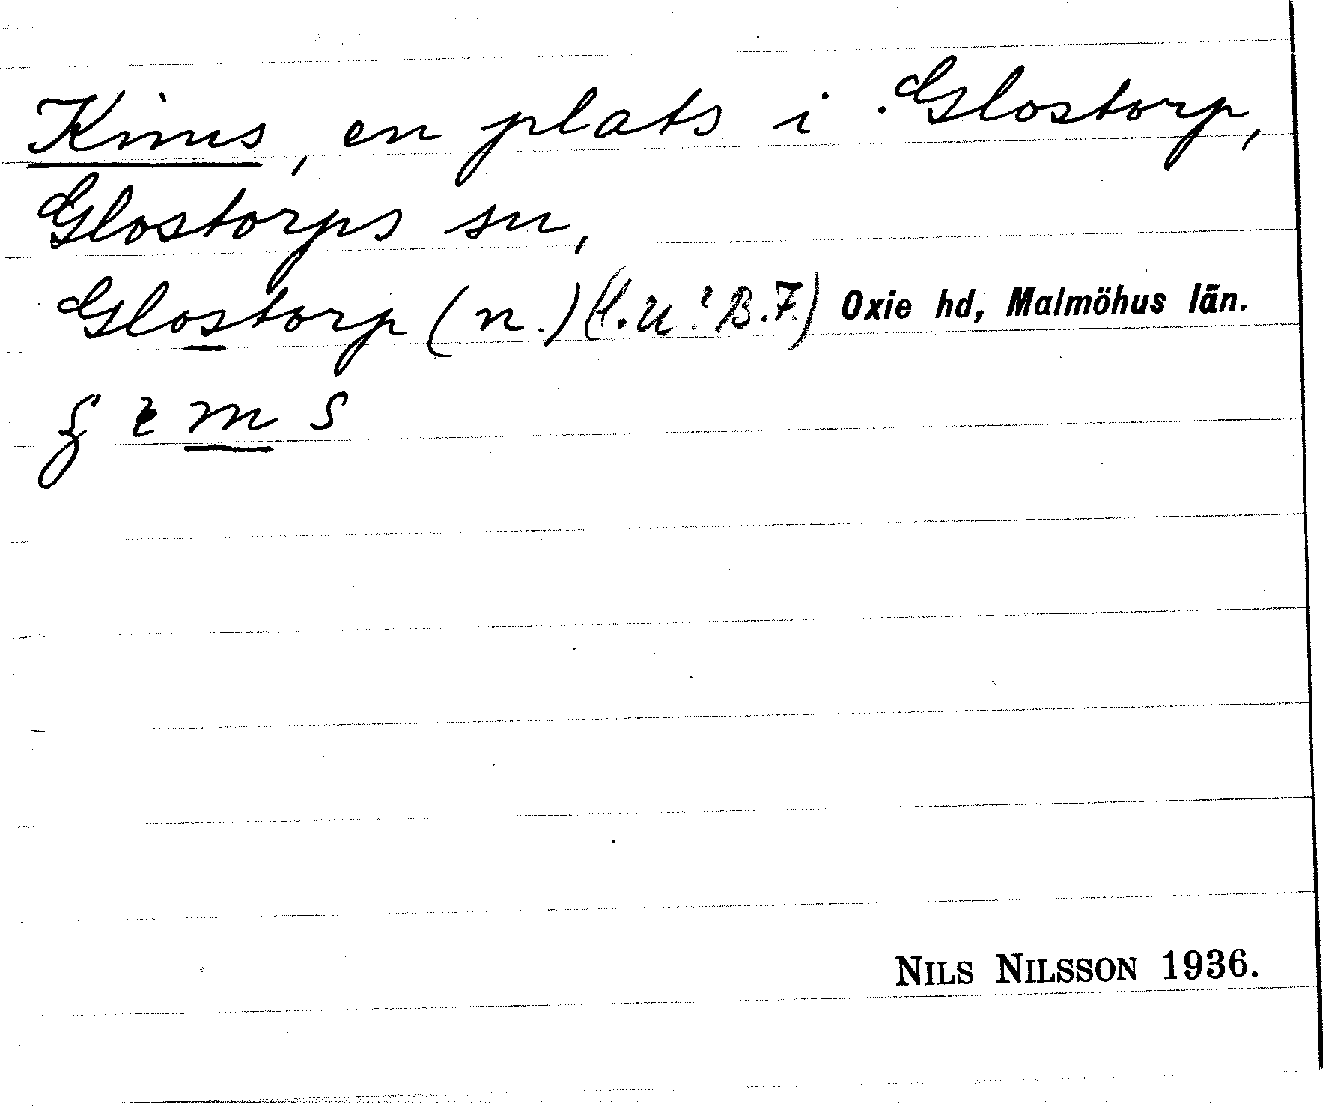 Kims, en plats i Glostorp,
Glostorps sn,
Glostorp (n.) (l.u! B.F.) Oxie hd, Malmöhus län.
NILS NILSSON 1936.